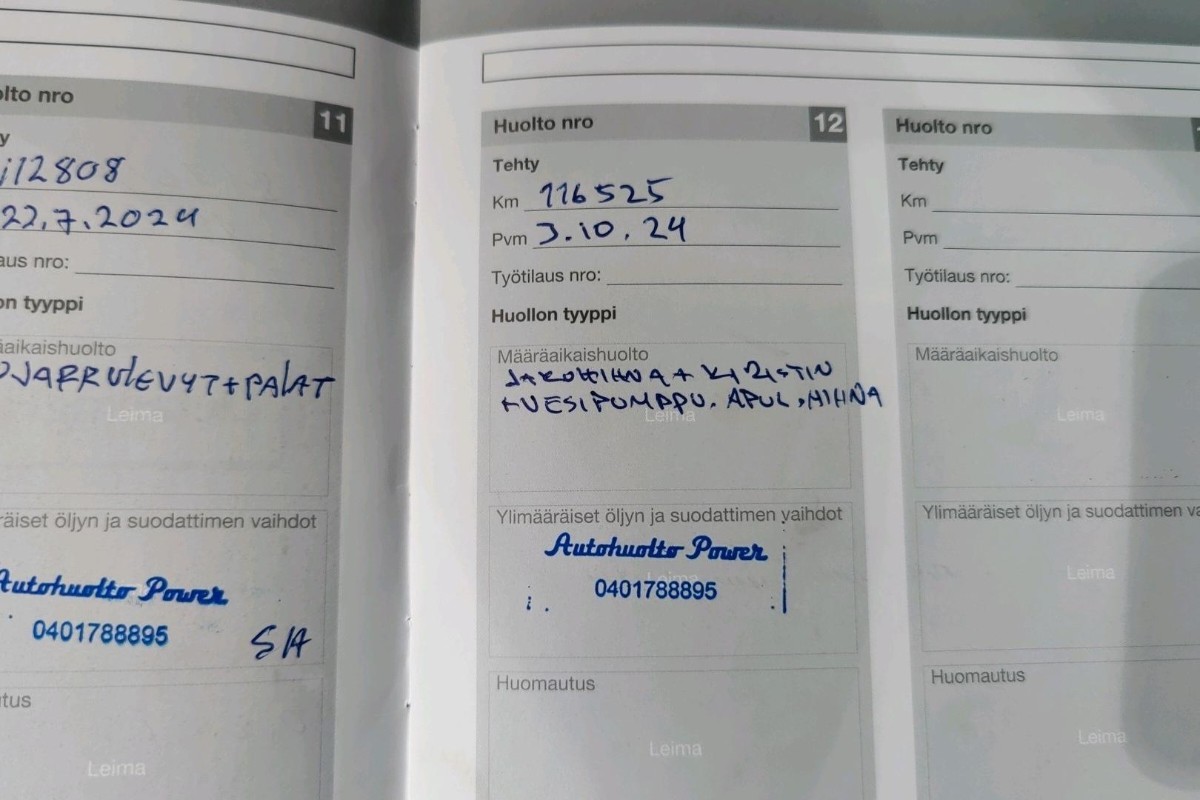 lto nro
11
y
112808
22.7.2024
aus nro:
on tyyppi
äaikaishuolto
JARRULEVYT + PALAT
Leima
räiset öljyn ja suodattimen vaihdot
Autohuolto Power
0401788895
SA
tus
Leima
Huolto nro
12
Tehty
Km 116525
Pvm 3.10.24
Työtilaus nro:
Huollon tyyppi
Määräaikaishuolto
JAKOHIHNA + KIRISTIN
+ VESIPUMPPU. APUL. HIHNA
Leima
Ylimääräiset öljyn ja suodattimen vaihdot
Autohuolto Power
Leima
0401788895
Huomautus
Leima
Huolto nro
Tehty
Km
Pvm
Työtilaus nro:
Huollon tyyppi
Määräaikaishuolto
Leima
Ylimääräiset öljyn ja suodattimen va
Leima
Huomautus
Leima